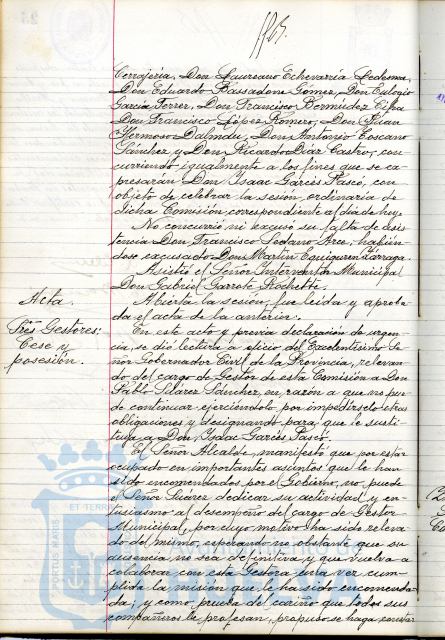 Cerrajería, Don Laureano Echevarría Ledesma,
Don Eduardo Bassadone Gómez, Don Eulogio
García Ferrer, Don Francisco Bermúdez
Don Francisco López Romero, Don Juan
Hermoso Dalmau, Don Antonio Toscano
Sánchez y Don Ricardo Díaz Castro, con
curriendo igualmente a los fines que se ex
presarán Don Isaac Garcés Pascó, con
objeto de celebrar la sesión ordinaria de
dicha Comisión correspondiente al día de hoy.
No concurrió ni excusó su falta de asis
tencia Don Francisco Sedano Arce, habién
dose excusado Don Martín Eguiguren
Asistió el Señor Interventor Municipal
Don Gabriel Garrote Rochette.
Acta.
Abierta la sesión, fue leída y aproba
da el acta de la anterior.
Tres Gestores:
Cese y
posesión.
En este acto y previa declaración de urgen
cia, se dio lectura a oficio del Excelentísimo Se
ñor Gobernador Civil de la Provincia, relevan
do del cargo de Gestor de esta Comisión a Don
Pablo Suárez Sánchez, en razón a que no pue
de continuar ejerciéndolo por impedírselo otras
obligaciones y designando para que le susti
tuya a Don Isaac Garcés Pascó.
El Señor Alcalde, manifestó que por estar
ocupado en importantes asuntos que le han
sido encomendados por el Gobierno, no puede
el Señor Suárez dedicar su actividad y en
tusiasmo al desempeño del cargo de Gestor
Municipal, por cuyo motivo ha sido releva
do del mismo, esperando no obstante que su
ausencia no sea definitiva y que vuelva a
colaborar con esta Gestora una vez cum
plida la misión que le ha sido encomenda
da; y como prueba del cariño que todos sus
compañeros le profesan, propuso se haga constar
PORTUS ALBUS
ET TERRA